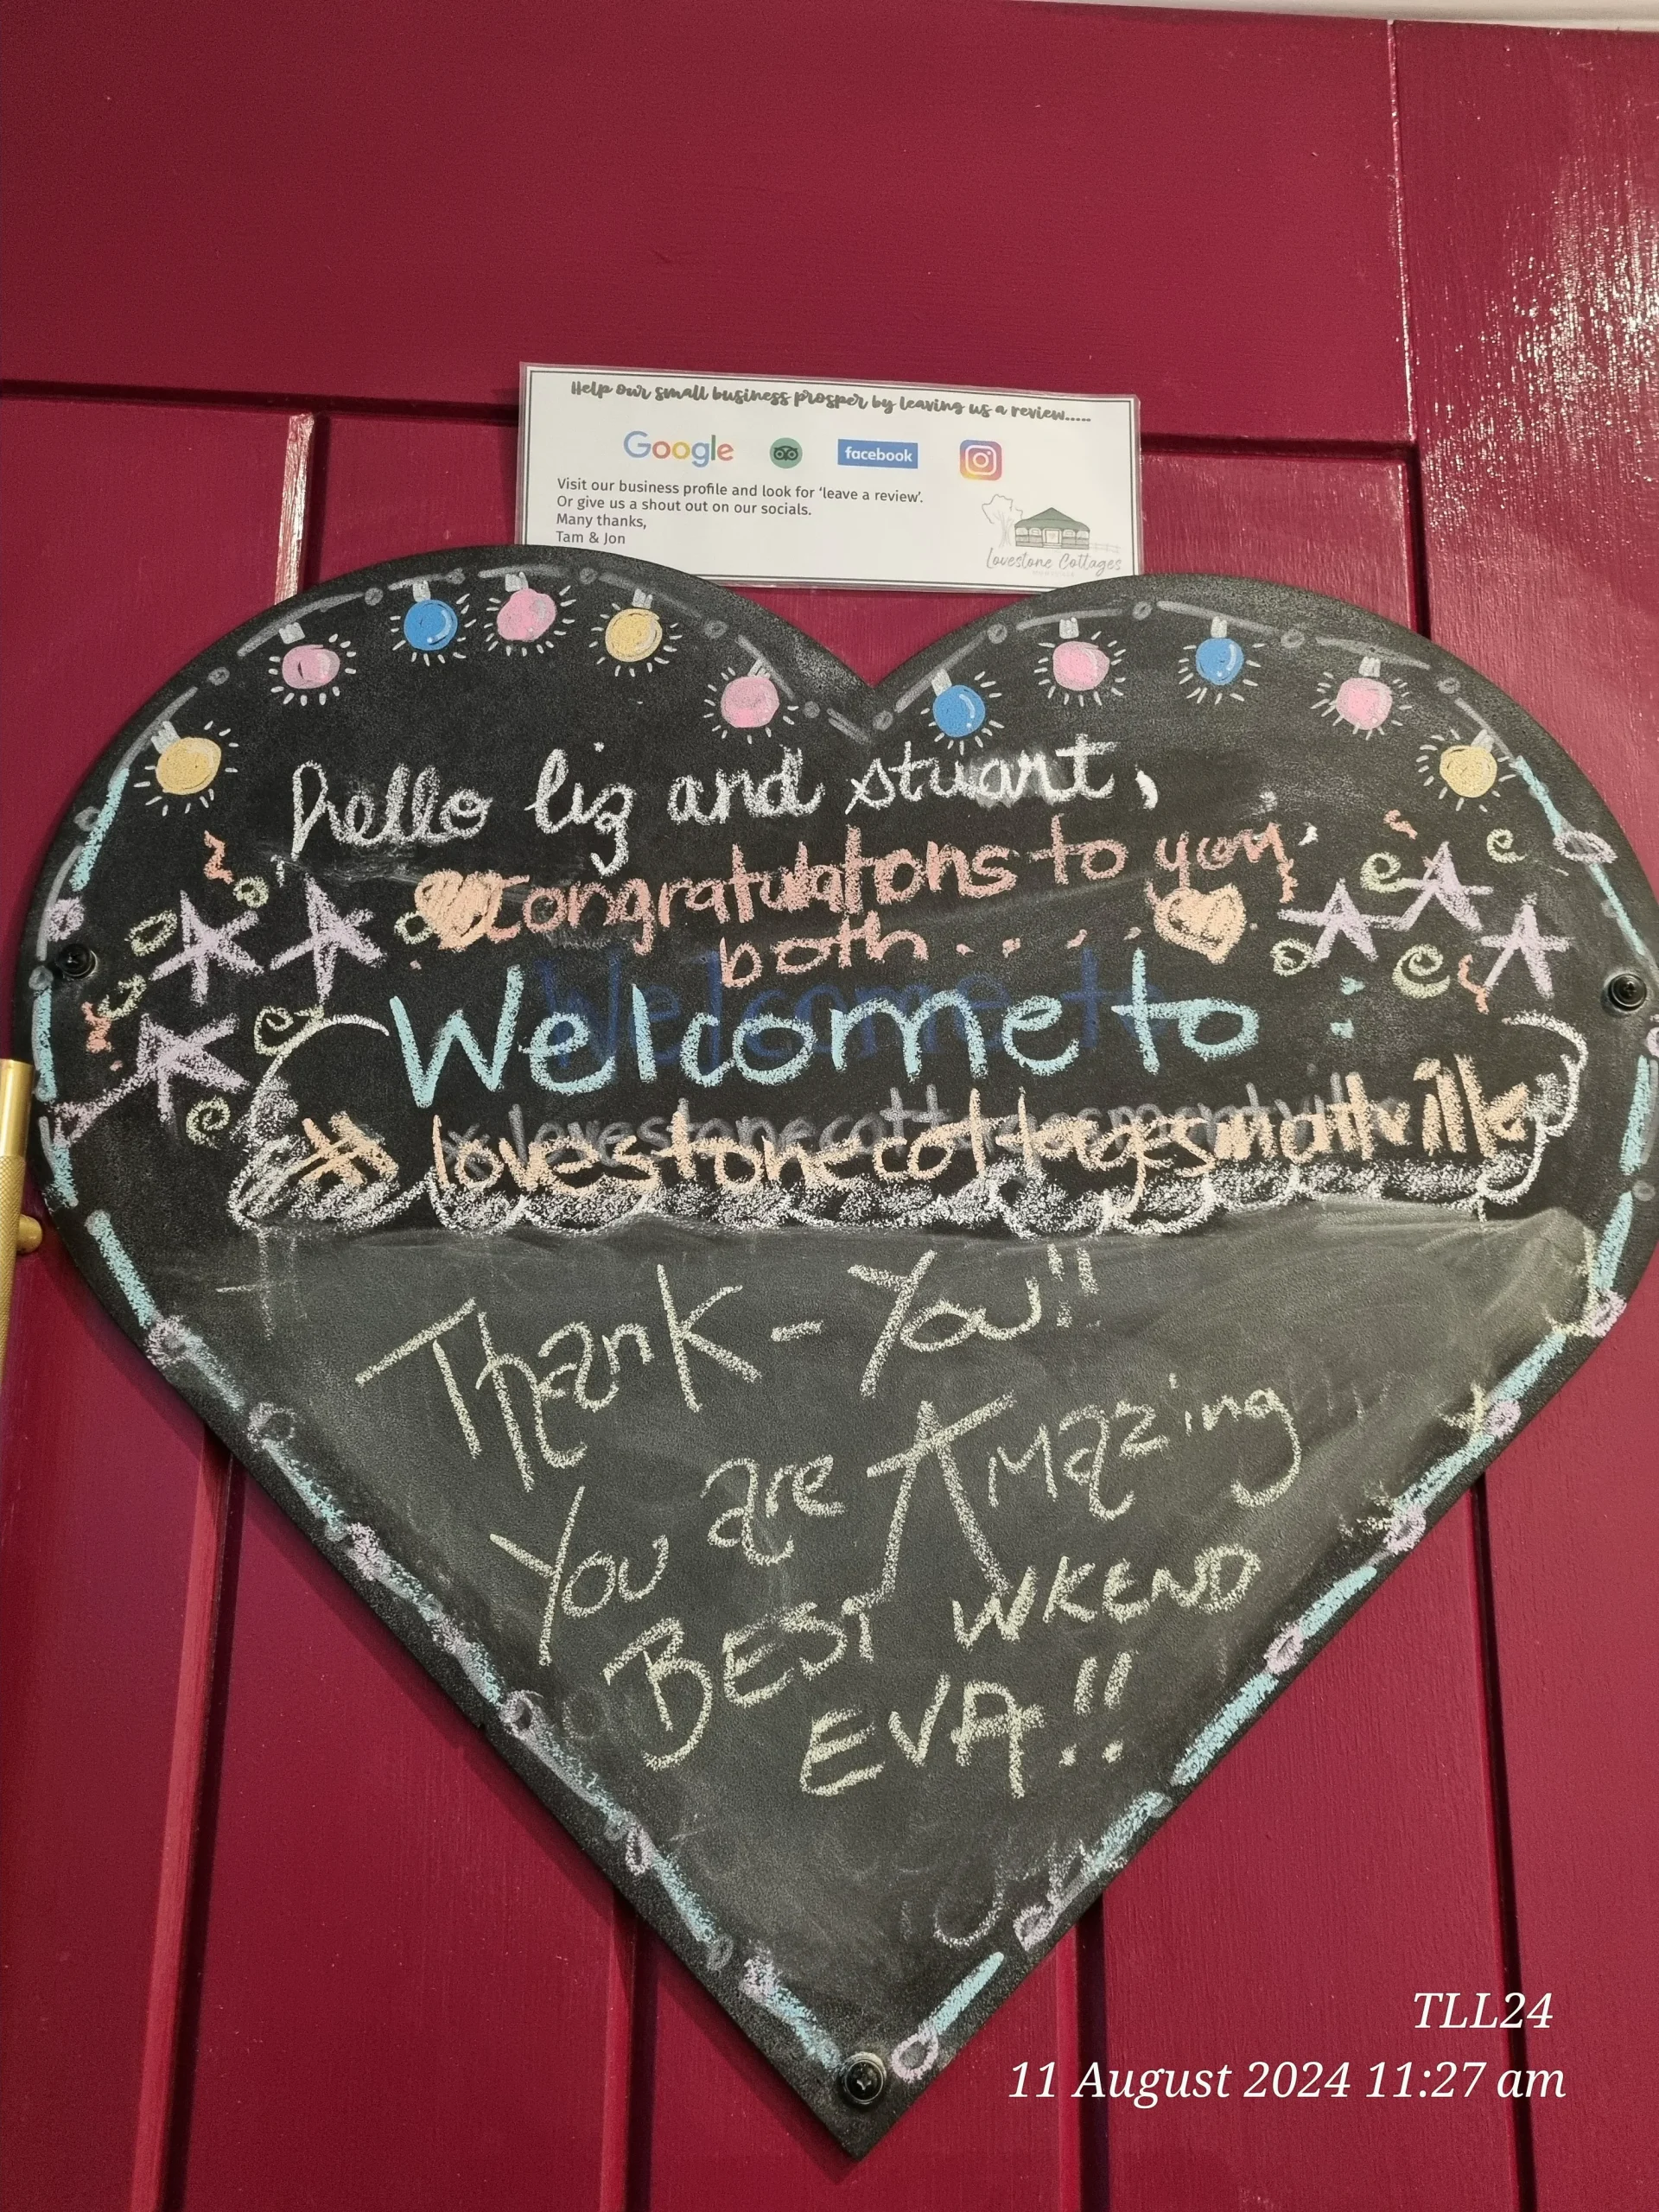 Help our small business prosper by leaving us a review.....
Google facebook
Visit our business profile and look for 'leave a review'.
Or give us a shout out on our socials.
Many thanks,
Tam & Jon
Lovestone Cottages
hello liz and stuart,
Congratulatons to you,
both....
Welcome to:
Thank-You!!
You are Amazing
BEST WKEND
EVA!!
TLL24
11 August 2024 11:27 am